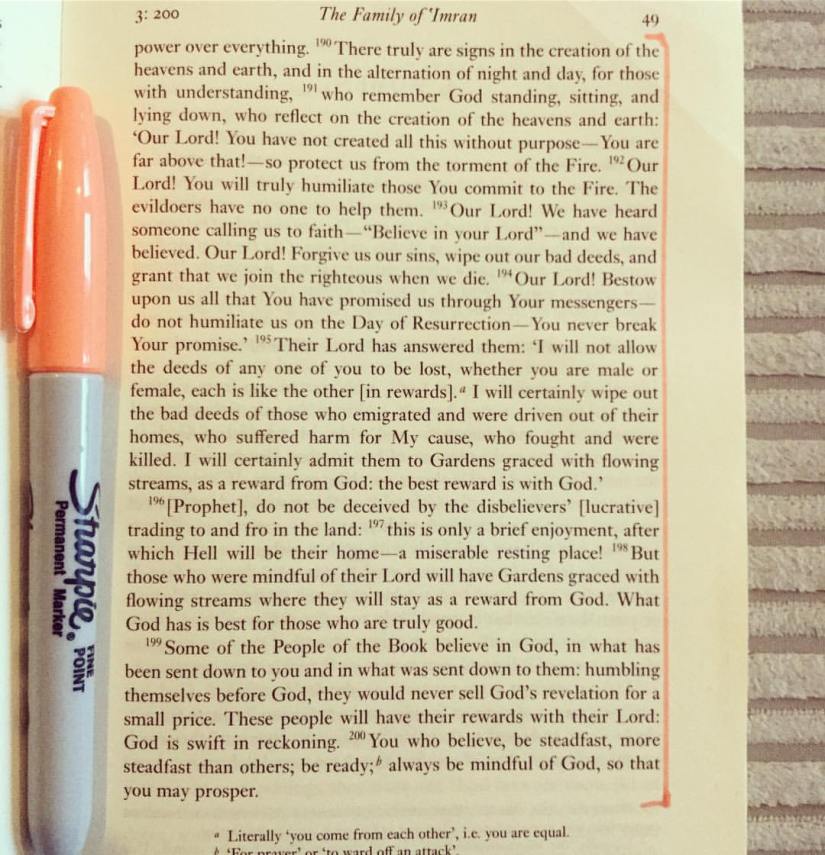 3: 200 The Family of 'Imran 49
power over everything. 190 There truly are signs in the creation of the
heavens and earth, and in the alternation of night and day, for those
with understanding, 191 who remember God standing, sitting, and
lying down, who reflect on the creation of the heavens and earth:
'Our Lord! You have not created all this without purpose—You are
far above that!—so protect us from the torment of the Fire. 192 Our
Lord! You will truly humiliate those You commit to the Fire. The
evildoers have no one to help them. 193 Our Lord! We have heard
someone calling us to faith—"Believe in your Lord"—and we have
believed. Our Lord! Forgive us our sins, wipe out our bad deeds, and
grant that we join the righteous when we die. 194 Our Lord! Bestow
upon us all that You have promised us through Your messengers—
do not humiliate us on the Day of Resurrection—You never break
Your promise.' 195 Their Lord has answered them: 'I will not allow
the deeds of any one of you to be lost, whether you are male or
female, each is like the other [in rewards].a I will certainly wipe out
the bad deeds of those who emigrated and were driven out of their
homes, who suffered harm for My cause, who fought and were
killed. I will certainly admit them to Gardens graced with flowing
streams, as a reward from God: the best reward is with God.'
196 [Prophet], do not be deceived by the disbelievers' [lucrative]
trading to and fro in the land: 197 this is only a brief enjoyment, after
which Hell will be their home—a miserable resting place! 198 But
those who were mindful of their Lord will have Gardens graced with
flowing streams where they will stay as a reward from God. What
God has is best for those who are truly good.
199 Some of the People of the Book believe in God, in what has
been sent down to you and in what was sent down to them: humbling
themselves before God, they would never sell God's revelation for a
small price. These people will have their rewards with their Lord:
God is swift in reckoning. 200 You who believe, be steadfast, more
steadfast than others; be ready;b always be mindful of God, so that
you may prosper.
a Literally 'you come from each other', i.e. you are equal.
b 'For prayer' or 'to ward off an attack'.
Sharpie®
Permanent Marker
FINE
POINT